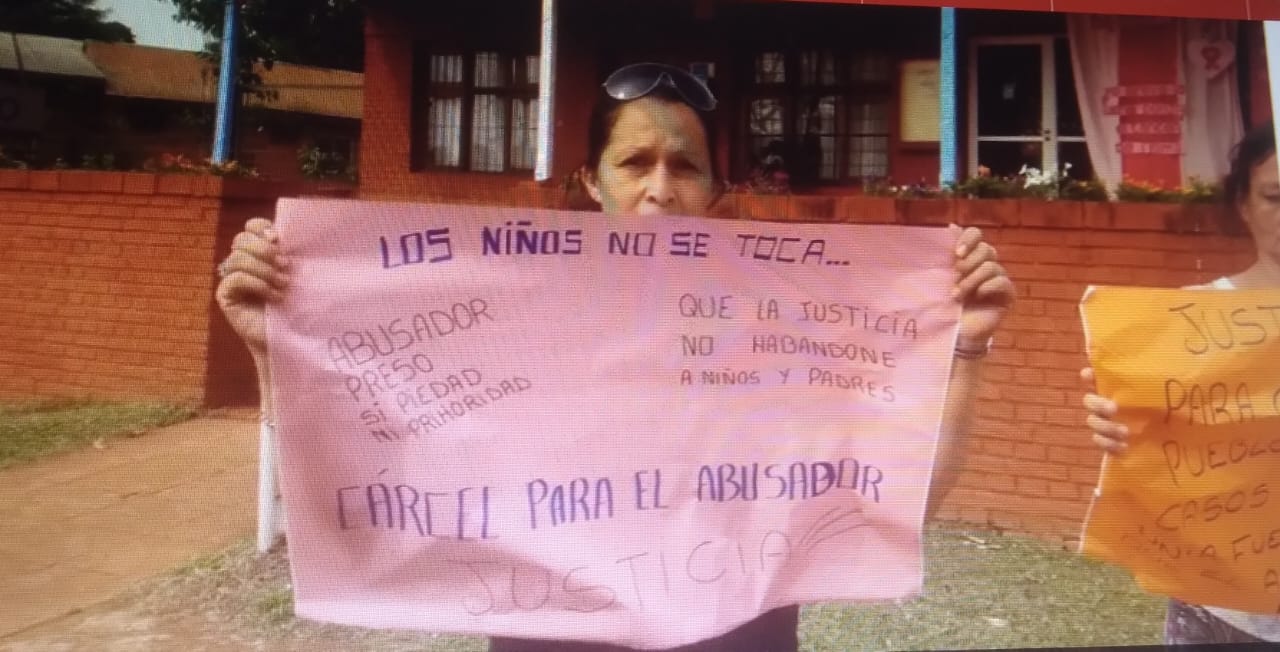 LOS NIÑOS NO SE TOCA...
ABUSADOR
PRESO
SI PIEDAD
NI PRIHORIDAD
QUE LA JUSTICIA
NO HABANDONE
A NIÑOS Y PADRES
CÁRCEL PARA EL ABUSADOR
JUSTICIA
JUST
PARA
PUEBLO
CASOS
FUE
A